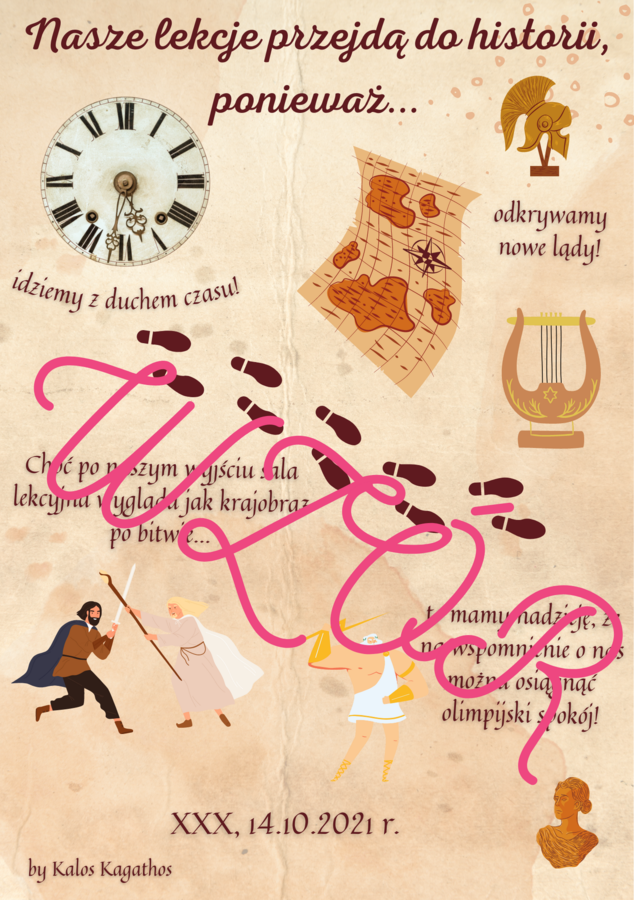 Nasze lekcje przejdą do historii,
ponieważ...
odkrywamy
nowe lądy!
idziemy z duchem czasu!
Choć po naszym wyjściu sala
lekcyjna wygląda jak krajobraz
po bitwie...
to mamy nadzieję, że
na wspomnienie o nas
można osiągnąć
olimpijski spokój!
WZÓR
XXX, 14.10.2021 r.
by Kalos Kagathos